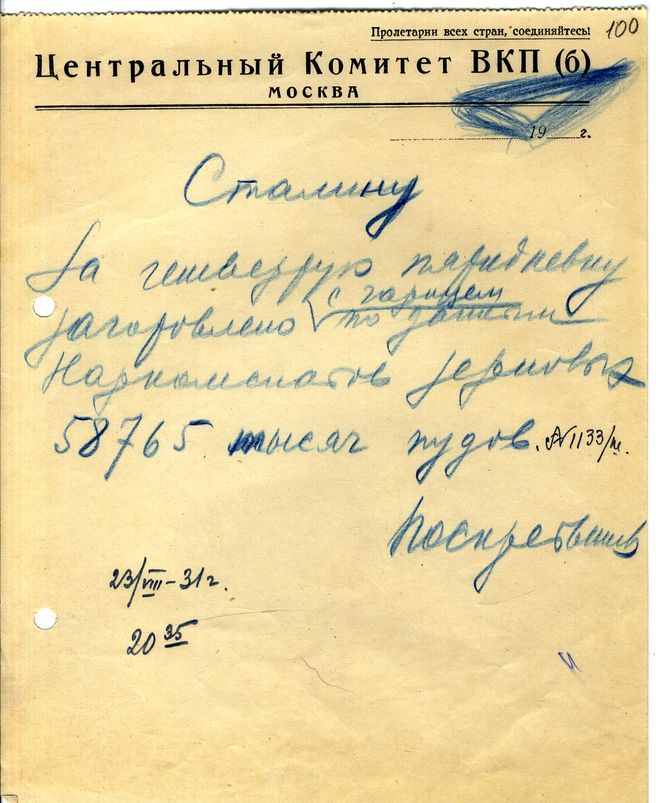 Пролетарии всех стран, соединяйтесь!
100
Центральный Комитет ВКП (б)
МОСКВА
19 г.
Сталину
За четвертую пятидневку
с гарнцем
заготовлено по данным
Наркомснабов зерновых
58765 тысяч пудов. №1133/ш.
Поскребышев
23/VIII-31 г.
20 35